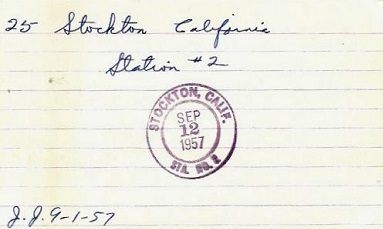 25 Stockton California
Station #2
STOCKTON, CALIF.
SEP
12
1957
STA. NO. 2
J.J. 9-1-57